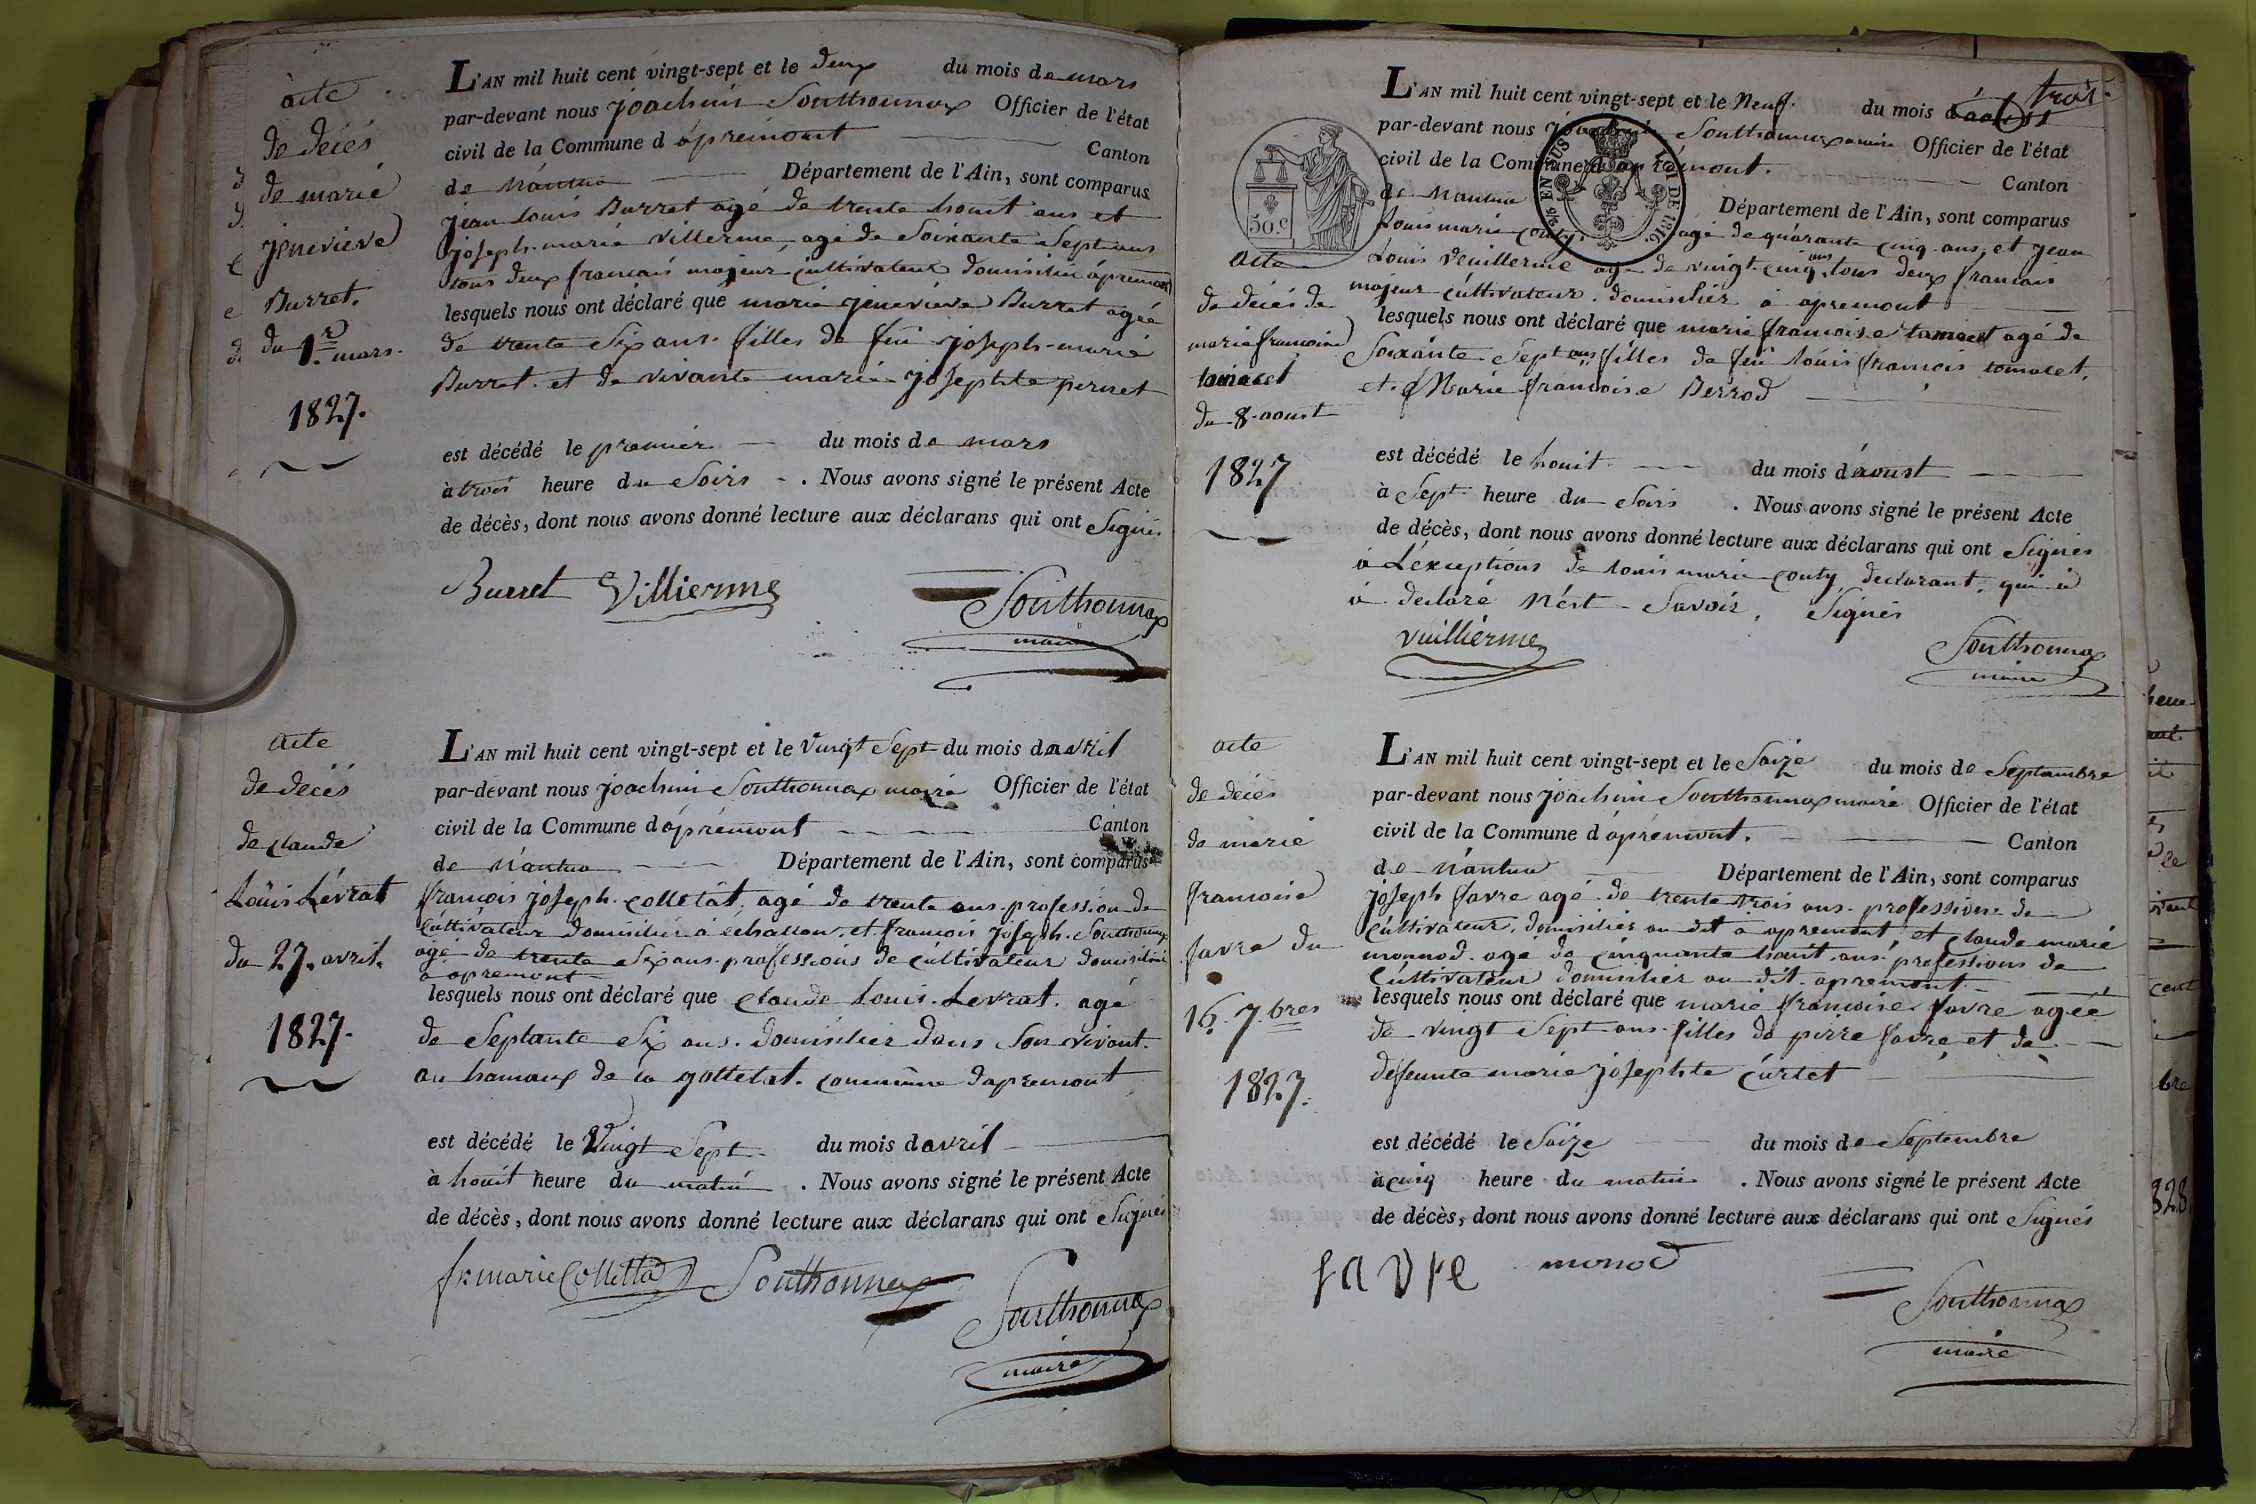 acte
de décés
de marié
jeneviéve
Burret.
du 1r. mars.
1827.
L'AN mil huit cent vingt-sept et le deux du mois de mars
par-devant nous joachim Southonnax Officier de l'état
civil de la Commune d'aprémont Canton
de Nantua Département de l'Ain, sont comparus
jean louis Burret agé de trente houit ans et
joseph-marié Villerme, agé de Soixante Sept ans
tous deux francais majeur cultivateur domisilié apremont
lesquels nous ont déclaré que marie jeneviéve Burret agée
de trente Six ans. filles de feu joseph-marié
Burret. et de vivante marié josephte pernet
est décédé le premiér du mois de mars
à trois heure du Soirs. Nous avons signé le présent Acte
de décès, dont nous avons donné lecture aux déclarans qui ont Signés
Burret Villierme Southonnax
maire
acte
de décés
de claude
Loüis Lévrat
du 27. avril.
1827.
L'AN mil huit cent vingt-sept et le Vingt Sept du mois d'avril
par-devant nous joachim Southonnax maire Officier de l'état
civil de la Commune d'aprémont Canton
de Nantua Département de l'Ain, sont comparus
francois joseph. colletàt. agé de trente ans. profession de
Cultivateur domisilié à échallon. et francois joseph. Southonnax
agé de trente Six ans. professions de cultivateur domisilié
à apremont
lesquels nous ont déclaré que claude Louis. Levrat. agé
de Septante Six ans. domisilier dans Son vivant.
au hamaux de la gottetat. commune d'apremont
est décédé le Vingt Sept. du mois d'avril
à houit heure du matin. Nous avons signé le présent Acte
de décès, dont nous avons donné lecture aux déclarans qui ont Signés
fs marie Collettaz Southonnax
Southonnax
maire
trois.
50.c
EN SUS LOI DE 1816.
acte
de décés de
marie francoise
tomacet
du 8. aoust
1827
L'AN mil huit cent vingt-sept et le Neuf. du mois d'aoust
par-devant nous joachim Southonnax maire Officier de l'état
civil de la Commune d'aprémont. Canton
de Nantua Département de l'Ain, sont comparus
Louis marie couty agé de quarante cinq. ans, et jean
Louis Veuillerme agé de vingt-cinq ans, tous deux francais
majeur cultivateur. domisiliér à apremont
lesquels nous ont déclaré que marie francoise tomacet agé de
Soixánte Sept ans filles de feu loüis francois tomacet.
et. d Marie francoise Berrod
est décédé le houit du mois d'áoust
à Sept heure du Soirs. Nous avons signé le présent Acte
de décès, dont nous avons donné lecture aux déclarans qui ont Signés
à L'éxceptions de louis marie couty declarant, qui à
à déclaré N'ést Savoir. Signés
Vuilliérme Southonnax
maire
acte
de décés
de marié
francoise
favre du
16. 7.bres
1827.
L'AN mil huit cent vingt-sept et le Saize du mois de Septembre
par-devant nous joachim Southonnax maire Officier de l'état
civil de la Commune d'aprémont. Canton
de Nantua Département de l'Ain, sont comparus
joseph favre agé de trente trois ans. professions de
Cultivateur. domisiliér au dit à apremont et claude marié
monnod. agé de cinquante houit. ans. professions de
Cultivateur domisiliér au dit. apremont.
lesquels nous ont déclaré que marie francoise favre agée
de vingt Sept ans. filles de pierre favre et de
défeunte marie joséphte curtet
est décédé le Saize du mois de Septembre
à cinq heure du matin. Nous avons signé le présent Acte
de décès, dont nous avons donné lecture aux déclarans qui ont Signés
favre monod
Southonnax
maire